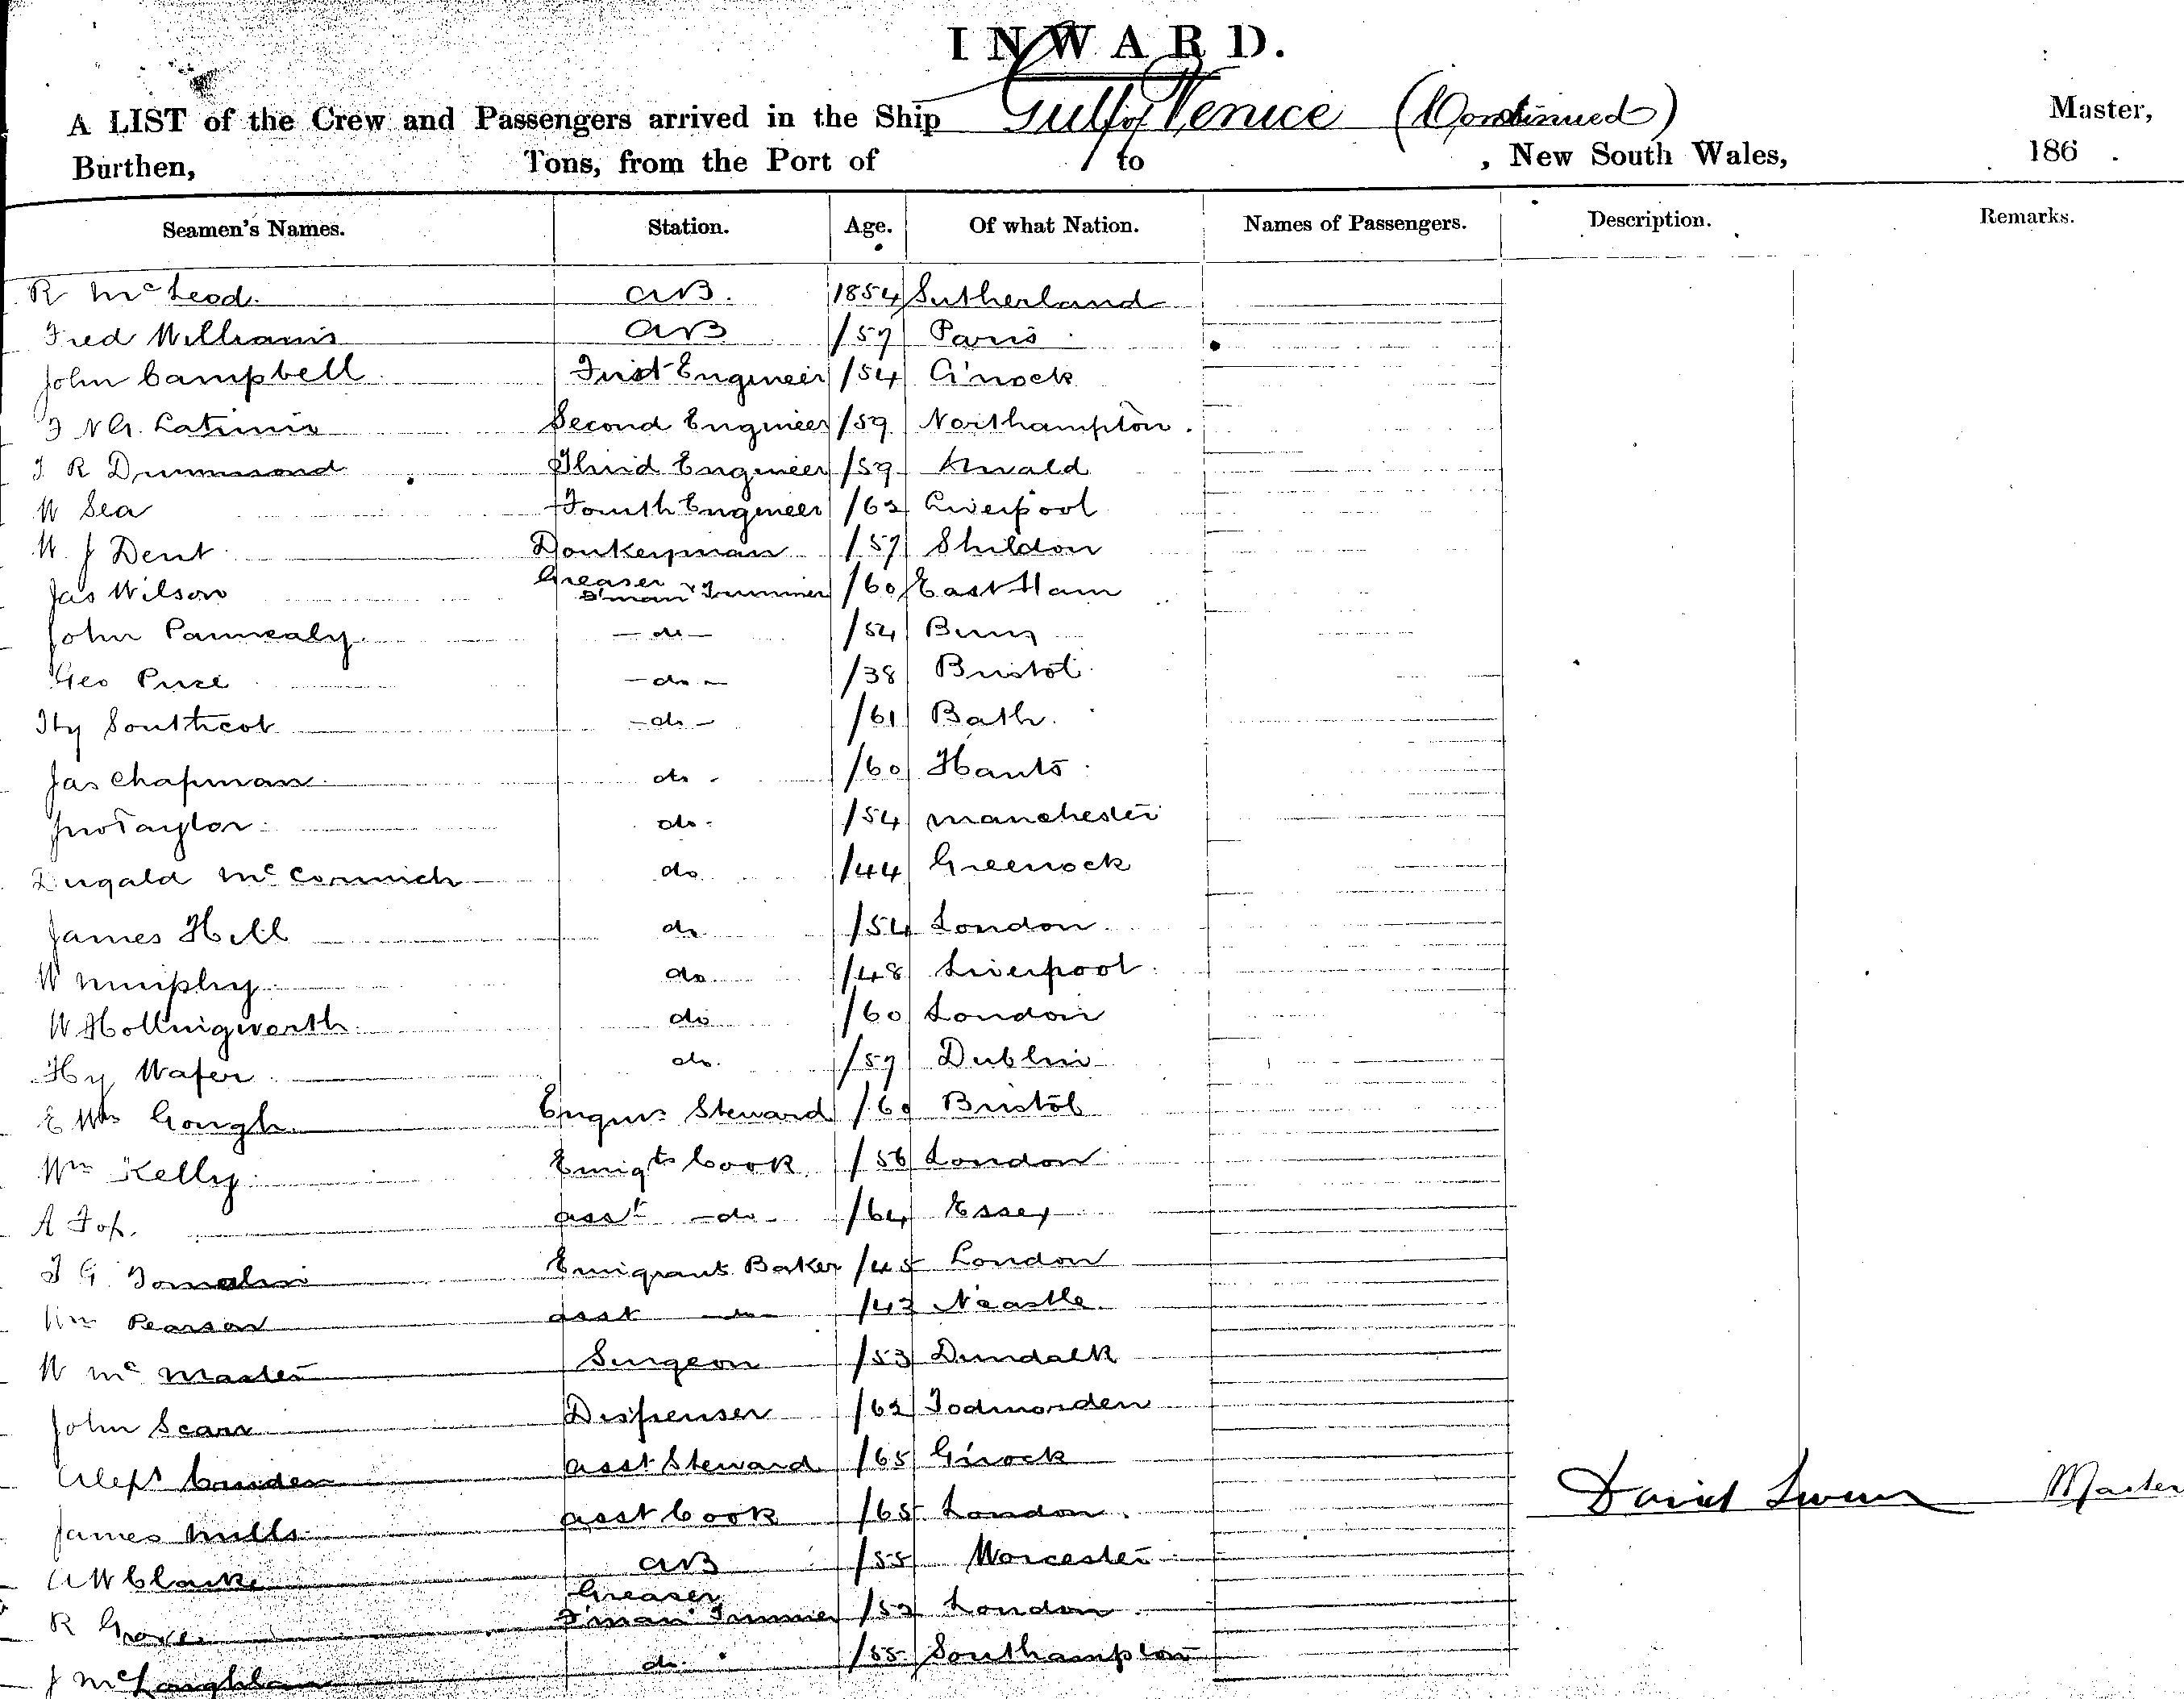 INWARD.
A LIST of the Crew and Passengers arrived in the Ship Gulf of Venice (Continued) Master,
Burthen, Tons, from the Port of to , New South Wales, 186 .
Seamen's Names. Station. Age. Of what Nation. Names of Passengers. Description. Remarks.
R McLeod. AB. 1854 Sutherland
Fred Williams AB /57 Paris
John Campbell First Engineer /54 G'nock
Latimer Second Engineer /59 Northampton.
R Drummond Third Engineer /59 
W Sea Fourth Engineer /62 Liverpool
W. J Dent Donkeyman /57 Shildon
Jas Wilson Greaser F'man Trimmer /60 East Ham
John — do — /54
Geo Price — do — /38 Bristol
Hy Southcot — do — /61 Bath.
Jas Chapman do /60 Hants
Jno Taylor do /54 Manchester
Dugald McCormich do /44 Greenock
James Hill do /54 London
W Murphy do /48 Liverpool
W Hollingworth do /60 London
Hy Wafer do. /57 Dublin
E Wm Gough Engrs Steward /60 Bristol
Wm Kelly Emigts Cook /56 London
A Fox. asst — do — /64 Essex
G. Tomalin Emigrants Baker /45 London
Wm Pearson asst do /43 N'castle
W McMaster Surgeon /53 Dundalk
John Scarr Dispenser /62 Todmorden
Alexr Cruden asst Steward /65 G'nock
David Master
James Mills asst Cook /65 London.
AW Clarke AB /55 Worcester
R Grove Greaser F'man Trimmer /52 London
J McLoughlan do. /55 Southampton